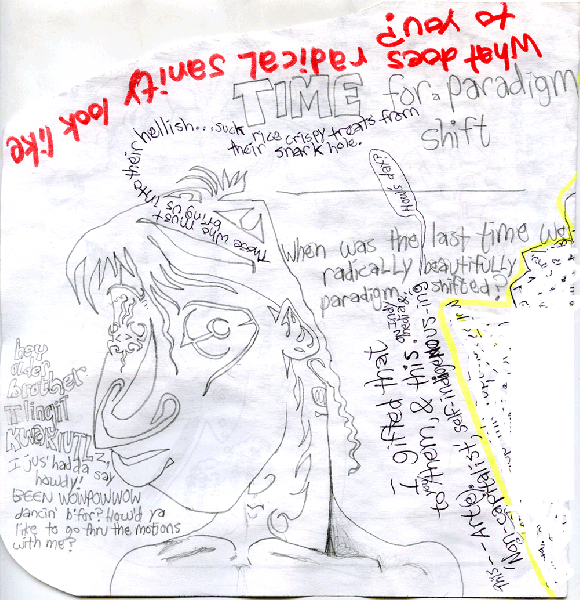 What does radical sanity look like
to you?
TIME for a paradigm
shift
Those who must bring us into their hellish... suck rice crispy treats from
their snark hole.
How's dat?
When was the last time we
radically beautifully
paradigm shifted?
I gifted that
to them, & this.
this - Art(e)
Non-capitalist, self-indigenous-ing
hey
older
brother
Tlingit
KWAKIUTL
I jus' hadda say
howdy!
BEEN WOWPOWWOW
dancin' b'for? How'd ya
like to go thru the motions
with me?